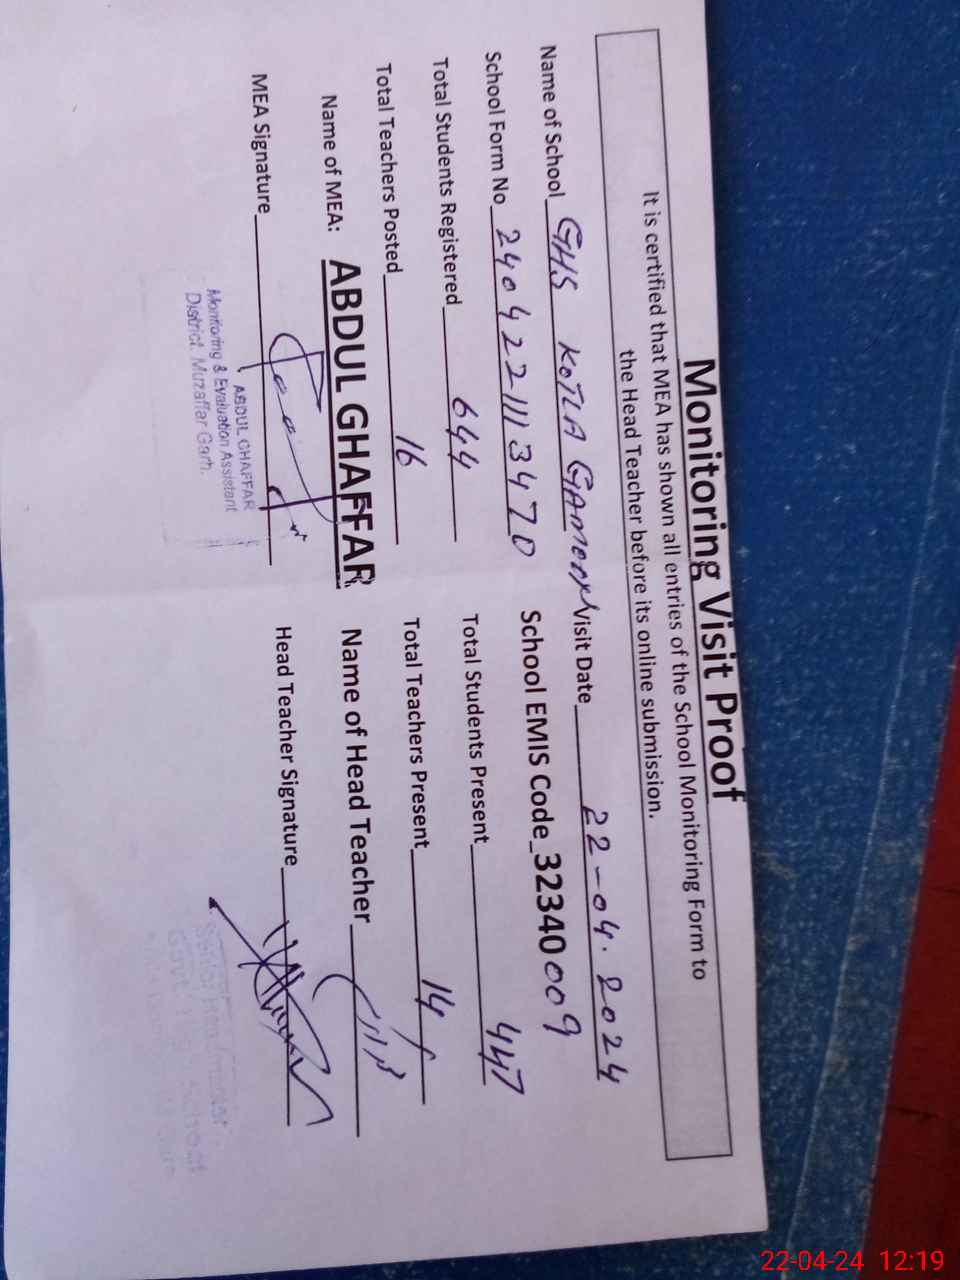 Monitoring Visit Proof
It is certified that MEA has shown all entries of the School Monitoring Form to
the Head Teacher before its online submission.
Name of School GHS KOTLA GAMOON Visit Date 22-04.2024
School Form No 2404221113470 School EMIS Code 32340009
Total Students Registered 644 Total Students Present 447
Total Teachers Posted 16 Total Teachers Present 14
Name of MEA: ABDUL GHAFFAR Name of Head Teacher
MEA Signature Head Teacher Signature
ABDUL GHAFFAR
Monitoring & Evaluation Assistant
District. Muzaffar Garh.
22-04-24 12:19